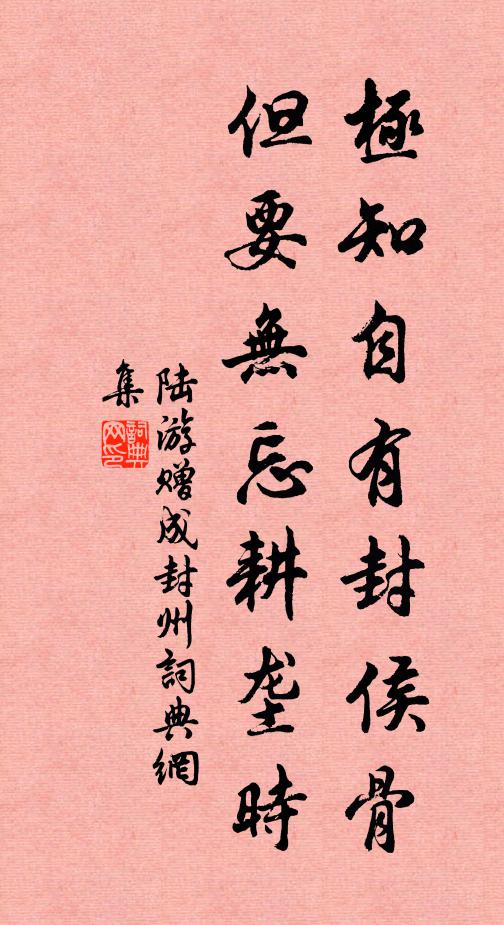 極知自有封侯骨
但要無忘耕垄時
陆游赠成封州詞典網
集
詞典网印